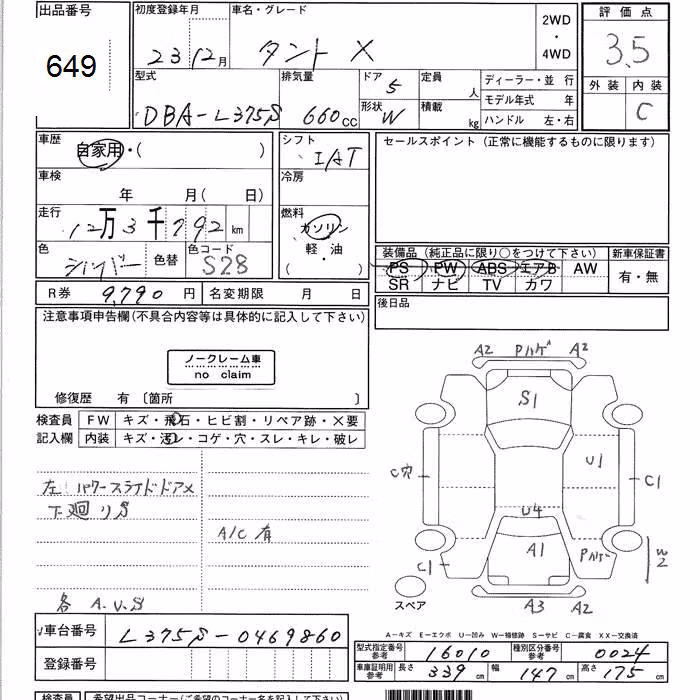 出品番号
649
初度登録年月
23 12月
車名・グレード
タント X
2WD
・
4WD
評 価 点
3.5
外 装 内 装
C
型式
DBA-L375S
排気量
660 cc
ドア 5
形状 W
定員 人
積載 kg
ディーラー・並 行
モデル年式 年
ハンドル 左・右
車歴
自家用・( )
シフト
IAT
セールスポイント (正常に機能するものに限ります)
車検
年 月( 日)
冷房
走行
12万3千792km
燃料
ガソリン
軽・油
( )
色
シルバー
色替
色コード
S28
装備品 (純正品に限り○をつけて下さい)
新車保証書
PS PW ABS エアB AW
SR ナビ TV カワ
有・無
R券 9,790 円
名変期限 月 日
後日品
注意事項申告欄(不具合内容等は具体的に記入して下さい)
ノークレーム車
no claim
修復歴 有 〔箇所 〕
検査員
記入欄
FW キズ・飛石・ヒビ割・リペア跡・×要
内装 キズ・汚レ・コゲ・穴・スレ・キレ・破レ
左 パワースライドドア×
下廻りS
A/C 有
各 A.U.S
A2 Pハゲ A2
S1
C穴
U1
C1
U4
A1
Pハゲ
W2
C1
スペア
A3 A2
A-キズ E-エクボ U-凹み W-補修跡 S-サビ C-腐食 XX-交換済
車台番号
L375S-0469860
登録番号
型式指定番号
参考
16010
種別区分番号
参考
0024
車庫証明用
参考
長さ 339 cm
幅 147 cm
高さ 175 cm
検査員
希望出品コーナー(ご希望のコーナー名を記入下さい)